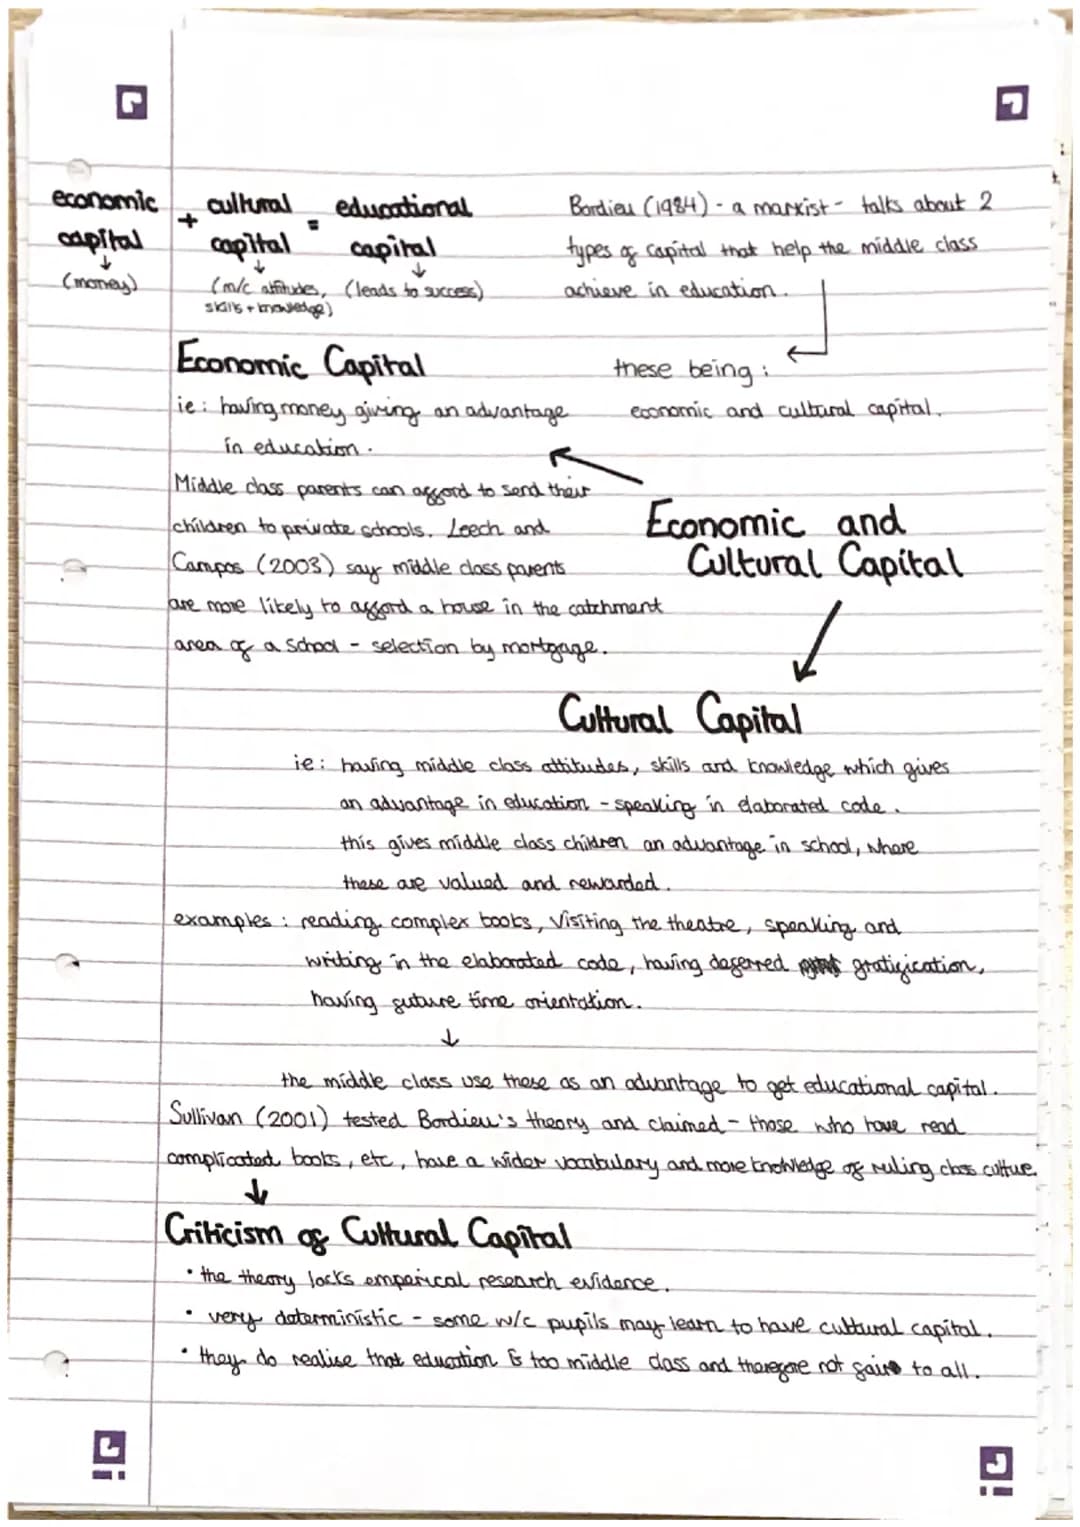 economic + cultural = educational
capital capital capital
↓ ↓ ↓
(money) (m/c attitudes, (leads to success)
skills + knowledge)
Bordieu (1984) - a marxist - talks about 2
types of capital that help the middle class
achieve in education.
these being:
economic and cultural capital.
Economic Capital
ie: having money giving an advantage
in education.
Middle class parents can afford to send their
children to private schools. Leech and
Campos (2003) say middle class parents
are more likely to afford a house in the catchment
area of a school - selection by mortgage.
Economic and
Cultural Capital
Cultural Capital
ie: having middle class attitudes, skills and knowledge which gives
an advantage in education - speaking in elaborated code.
this gives middle class children an advantage in school, where
these are valued and rewarded.
examples: reading complex books, visiting the theatre, speaking and
writing in the elaborated code, having deferred gratification,
having future time orientation.
↓
the middle class use these as an advantage to get educational capital.
Sullivan (2001) tested Bordieu's theory and claimed - those who have read
complicated books, etc, have a wider vocabulary and more knowledge of ruling class culture.
↓
Criticism of Cultural Capital
• the theory lacks emperical research evidence.
• very deterministic - some w/c pupils may learn to have cultural capital.
• they do realise that education is too middle class and therefore not fair to all.